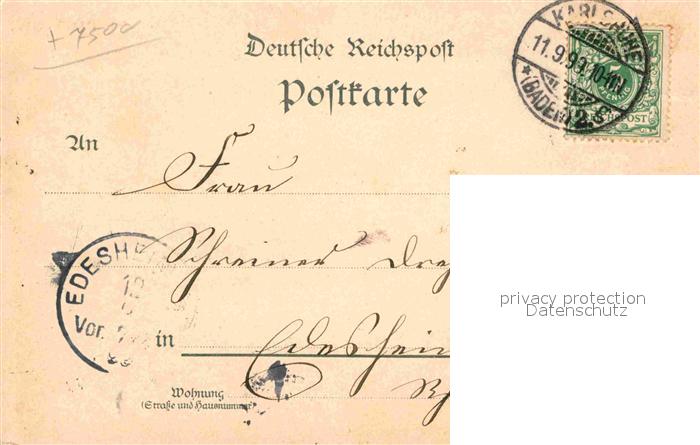 + 7500
Deutsche Reichspost
Postkarte
KARLSRUHE
11.9.99.10-11V
* (BADEN) 2.
REICHSPOST
An
Frau
Schreiner
EDESHEIM
Vor.
in
Edesheim
Wohnung
(Straße und Hausnummer)
privacy protection
Datenschutz